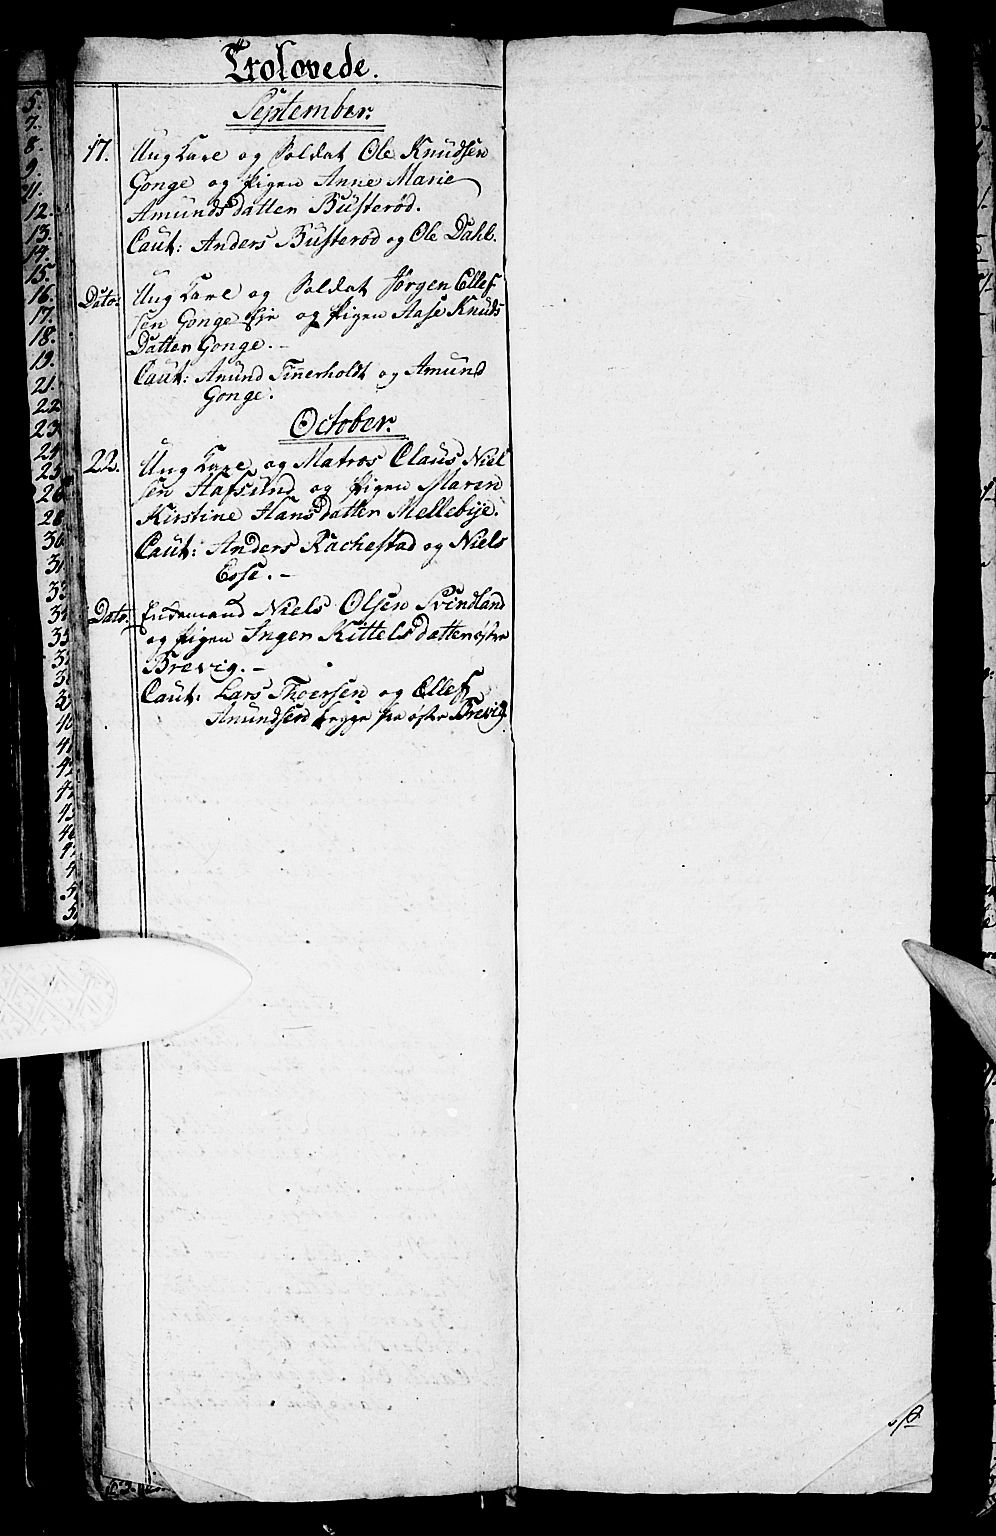 Trolovede.
September.
17. Ung Karl og Soldat Ole Knudsen
Gonge og Pigen Anne Marie
Amunds datter Busterød.
Caut: Anders Busterød og Ole Dahl.
Dato. Ung Karl og Soldat Jørgen Ellef
sen Gonge eje og Pigen Aase Knuds
Datter Gonge. -
Caut: Anund Tinerholdt og Amund
Gonge.
October.
22. Ung Karl og Matros Claus Niel
sen Hafsund og Pigen Maren
Kirstine Hans datter Mellebye.
Caut: Anders Rachestad og Niels
Esse. -
Dato. Enkemand Niels Olsen Svindland
og Pigen Inger Kittels datter øster
Brevig. -
Caut: Lars Thoersen og Ellef
Amundsen begge fra øster Brevig.
5.
7.
8.
9.
11.
12.
13.
14.
15.
16.
17.
18.
19.
21.
22
23
24
25
26
28
30
31
33